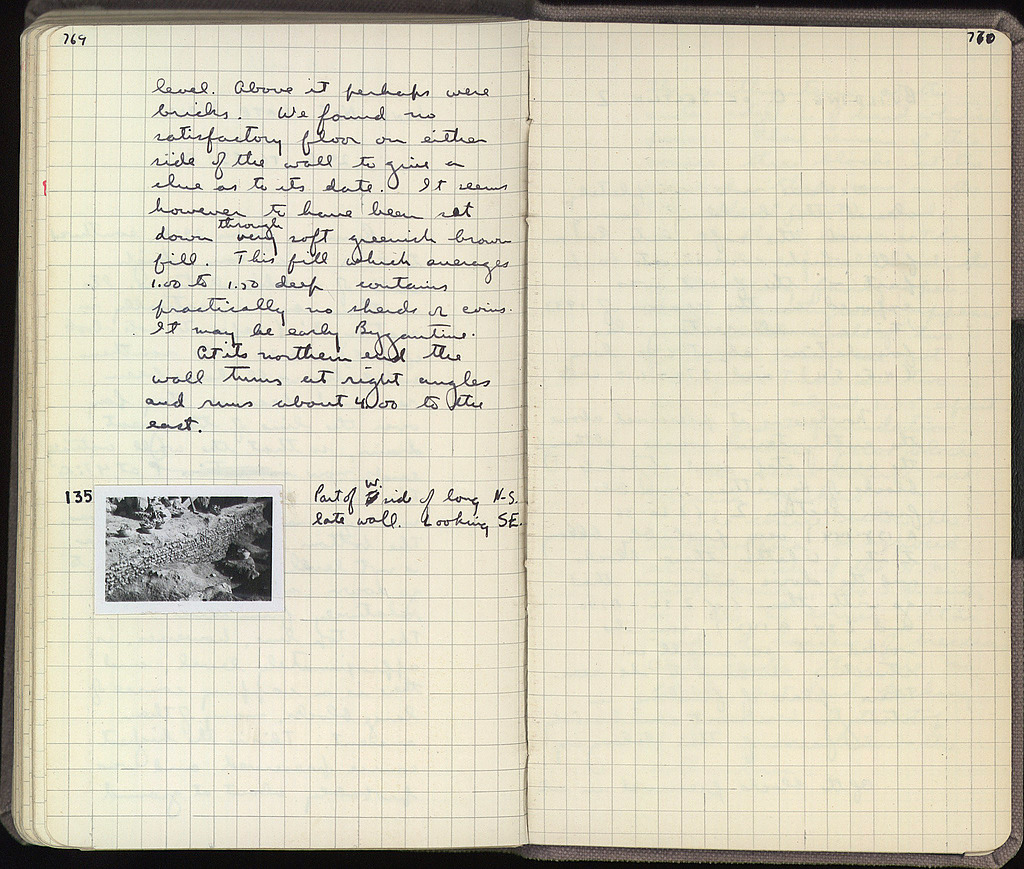 769
level. Above it perhaps were
bricks. We found no
satisfactory floor on either
side of the wall to give a
clue as to its date. It seems
however to have been set
down through very soft greenish brown
fill. This fill which averages
1.00 to 1.50 deep contains
practically no sherds or coins.
It may be early Byzantine.
At its northern end the
wall turns at right angles
and runs about 4.00 to the
east.
135
Part of W. side of long N-S.
late wall. Looking SE.
770